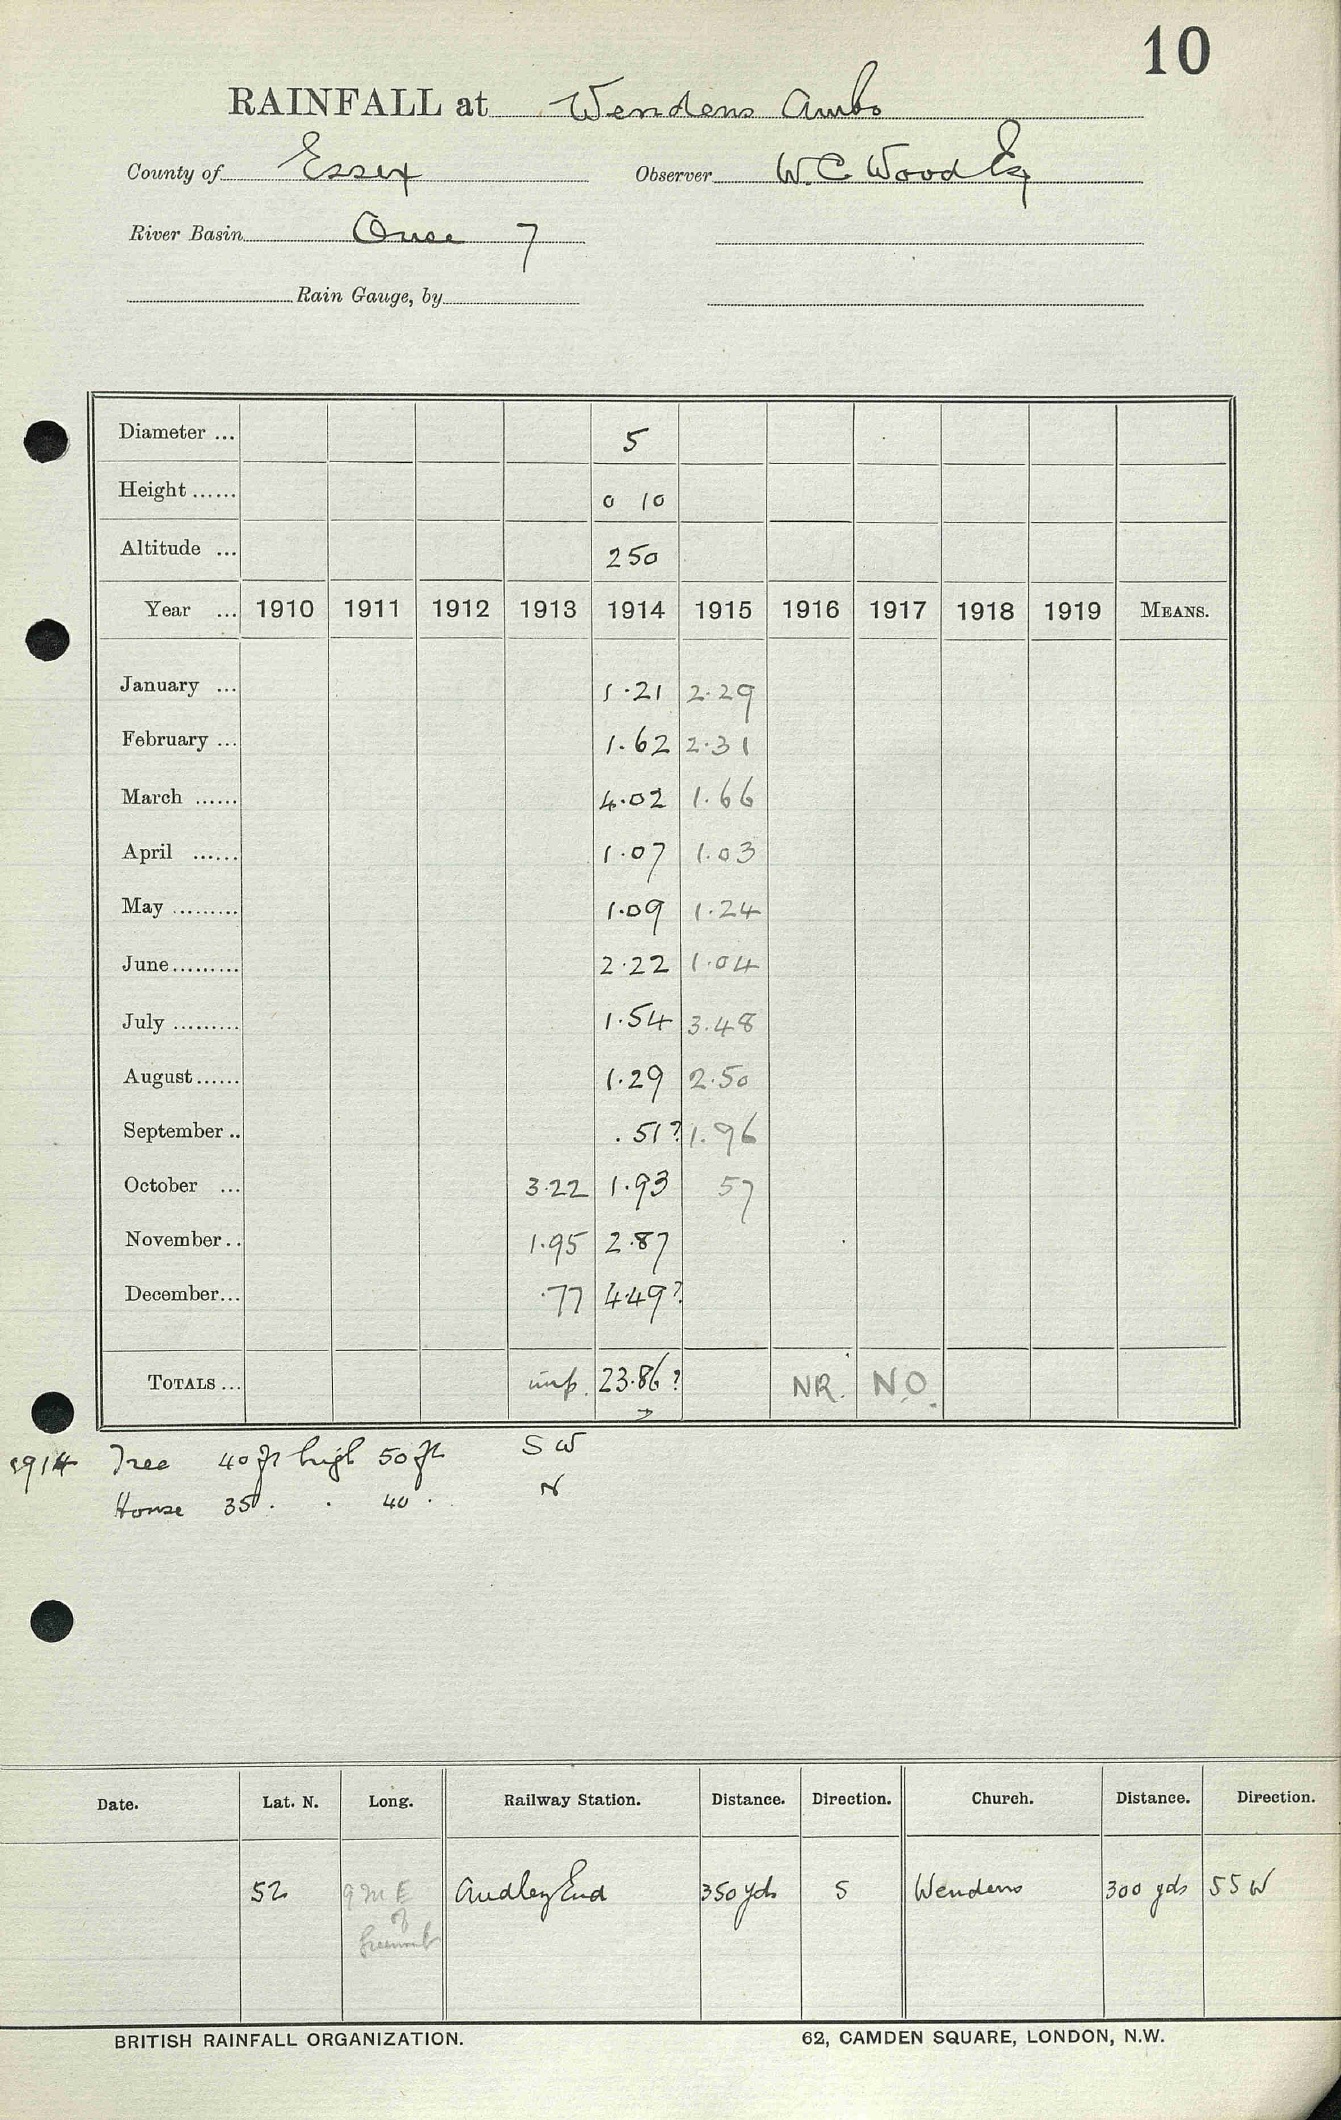 10
RAINFALL at Wendens Ambo
County of Essex Observer W. C. Wood Esq
River Basin Ouse 7
Rain Gauge, by
Diameter ... 5
Height ...... 0 10
Altitude ... 250
Year ... 1910 1911 1912 1913 1914 1915 1916 1917 1918 1919 MEANS.
January ... 1.21 2.29
February ... 1.62 2.31
March ...... 4.02 1.66
April ...... 1.07 1.03
May ......... 1.09 1.24
June......... 2.22 1.04
July ......... 1.54 3.48
August...... 1.29 2.50
September .. .51? 1.96
October ... 3.22 1.93 57
November .. 1.95 2.87
December... .77 4.49?
TOTALS ... imp. 23.86? NR. N.O.
1914 Tree 40 ft high 50 ft SW
House 35 . . 40 . N
Date. Lat. N. Long. Railway Station. Distance. Direction. Church. Distance. Direction.
52 9 m E Audley End 350 yds S Wendens 300 yds SSW
of
Greenwich
BRITISH RAINFALL ORGANIZATION. 62, CAMDEN SQUARE, LONDON, N.W.